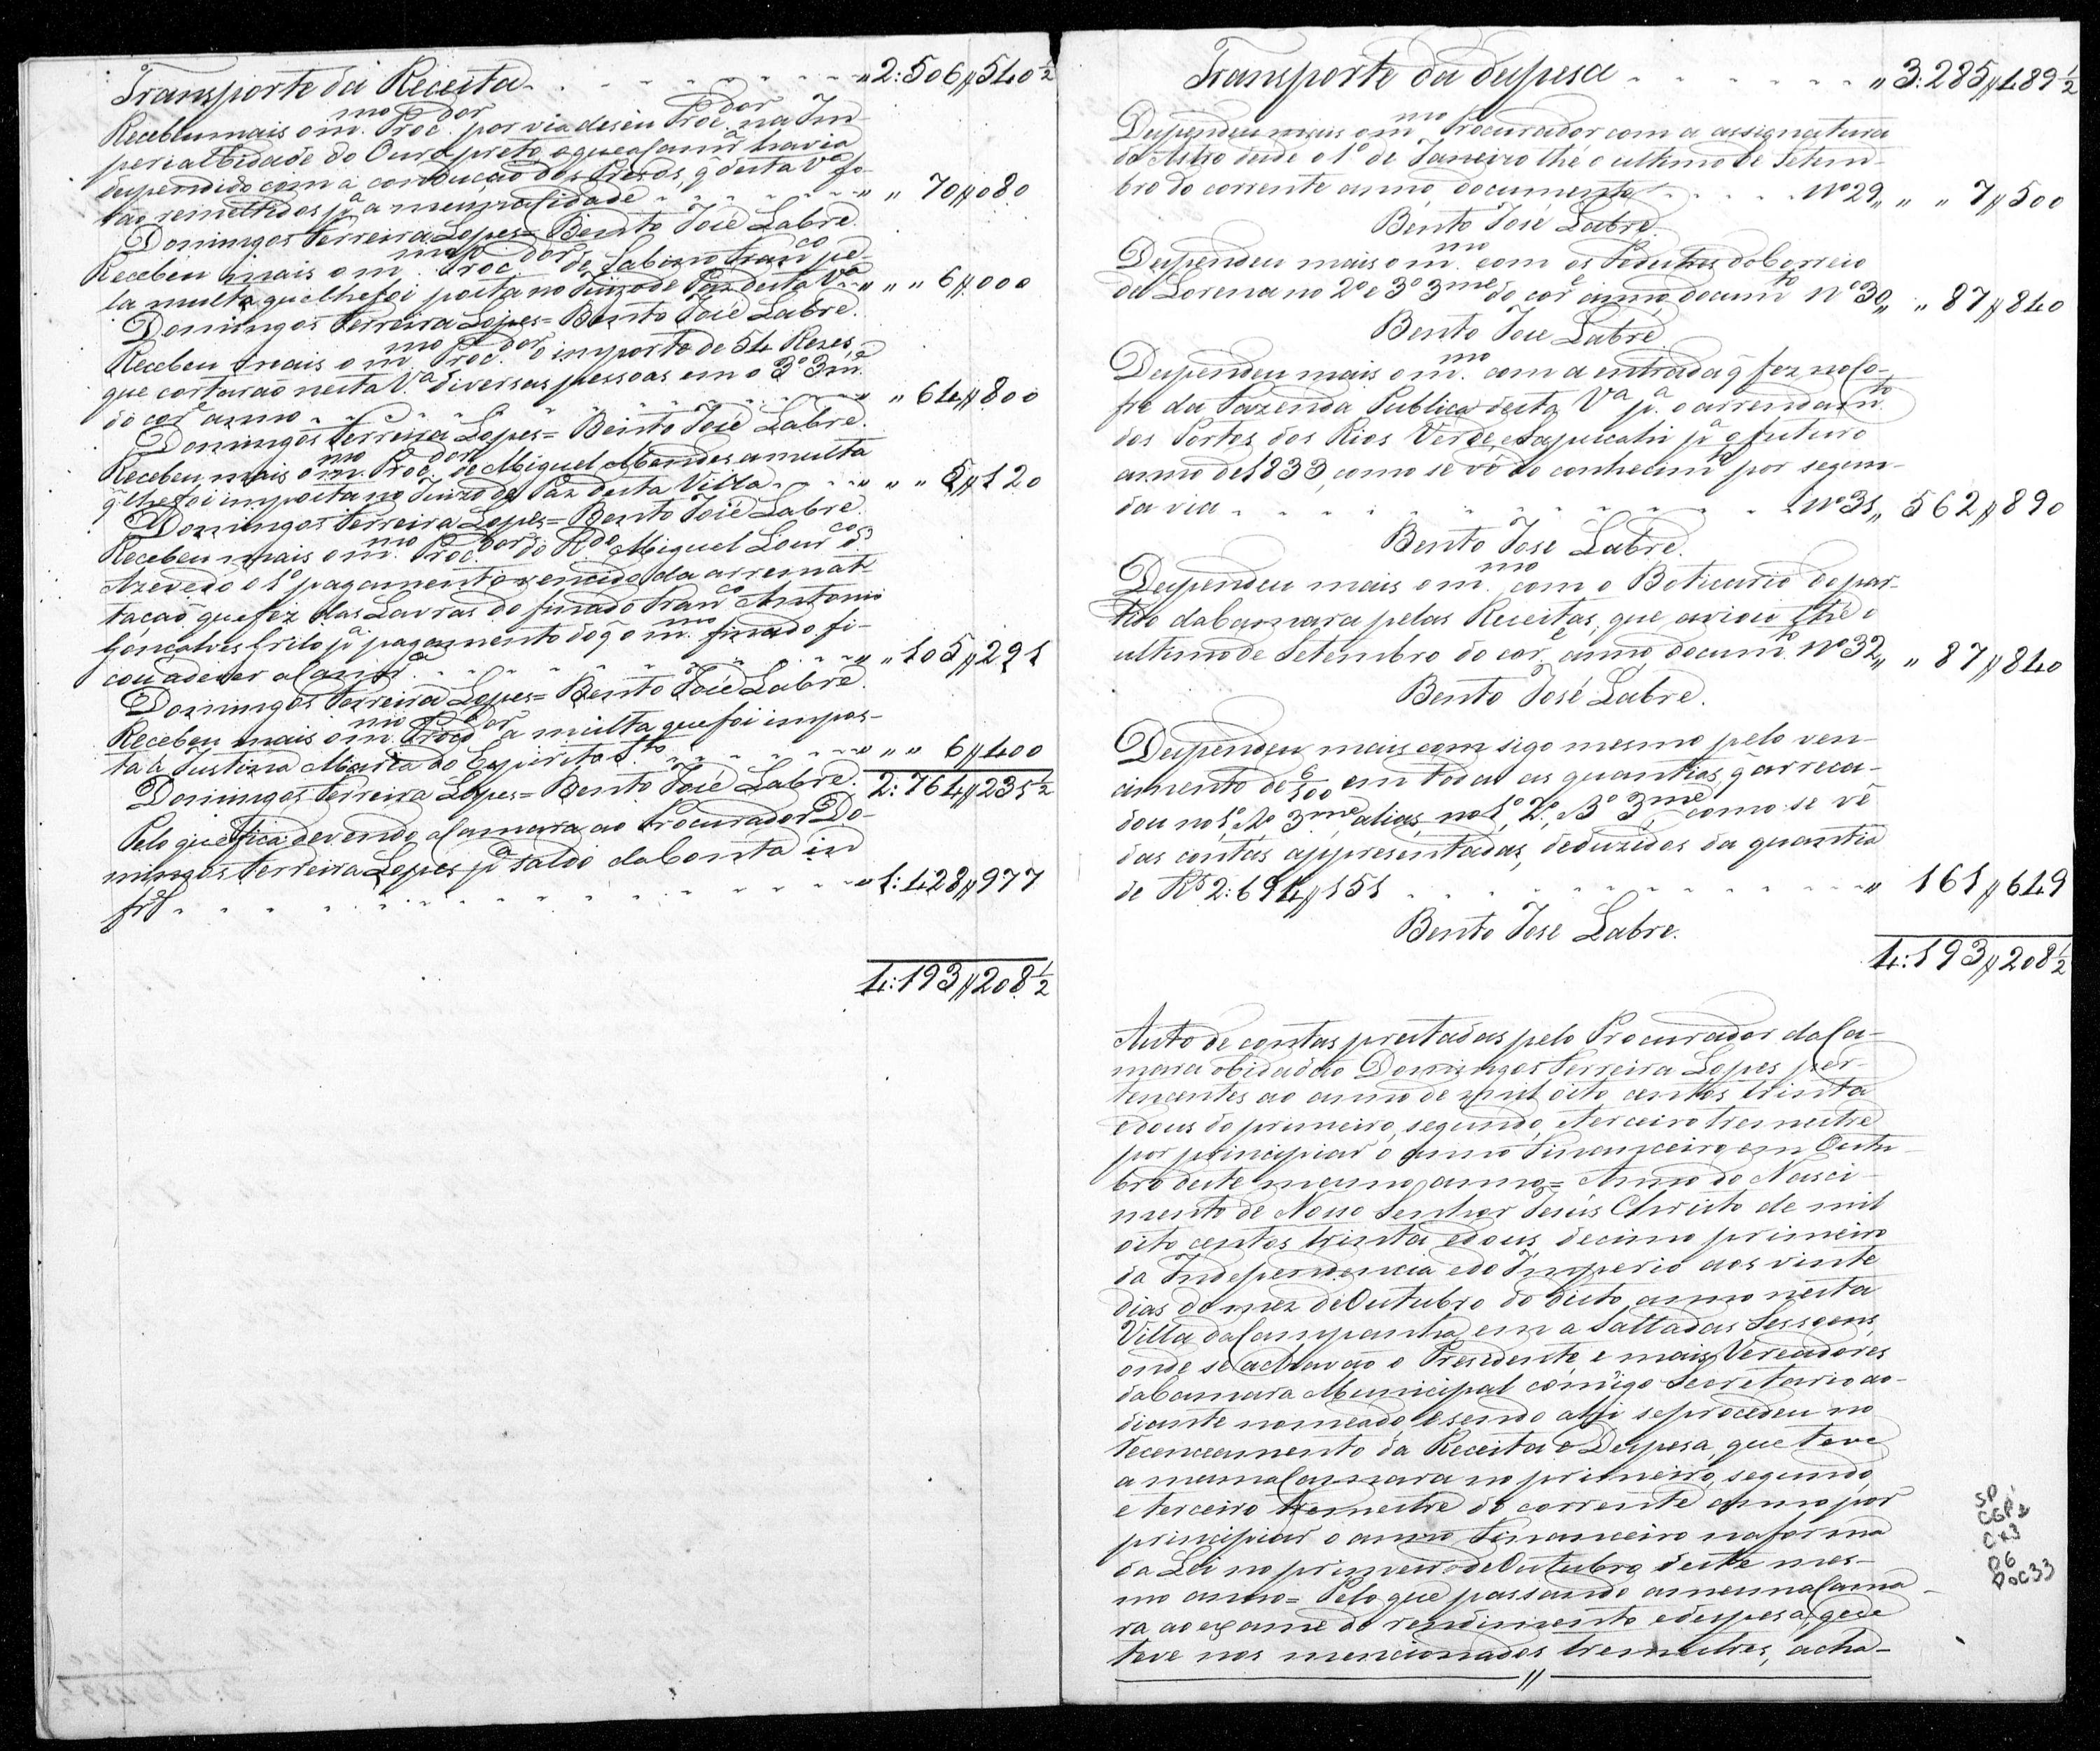 Transporte da Receita . . . . . . . . . " 2:506$540 ½
Recebeu mais o m.mo Proc.dor por via de seu Proc.dor na Im-
perial Cidade do Ouro preto o que a Camr.ª havia
despendido com a conducção dos Presos, q̃ desta V.ª fo-
rão remettidos p.ª a mesma Cidade . . . . . " " 70$080
Domingos Ferreira Lopes = Bento José Labre.
Recebeu mais o m.mo Proc.dor de Sabino Fran.co pe-
la multa que lhe foi posta no Juizo de Paz desta V.ª " " " 6$000
Domingos Ferreira Lopes = Bento José Labre.
Recebeu mais o m.mo Proc.dor o importe de 54 Rezes,
que cortarão nesta V.ª diversas pessoas em o 3º 3m.e
do cor.e anno . . . . . . . . . . " " 64$800
Domingos Ferreira Lopes = Bento José Labre.
Recebeu mais o m.mo Proc.dor de Miguel Mendes a multa
q̃ lhe foi imposta no Juizo de Paz desta Villa . . . . " " " 5$120
Domingos Ferreira Lopes = Bento José Labre.
Recebeu mais o m.mo Proc.dor do R.do Miguel Lour.co d'
Azevedo o 1º pagamento vencido da arremat-
tacaõ que fez das Lavras do finado Fran.co Antonio
Gonçalves Grilo p.ª pagamento do q̃ o m.mo finado fi-
cou a dever a Camr.ª . . . . . . . . " " 105$291
Domingos Ferreira Lopes = Bento José Labre.
Recebeu mais o m.mo Proc.dor a multa que foi impos-
ta á Justina Maria do Espirito S.to . . . . . . " " " 6$400
Domingos Ferreira Lopes = Bento José Labre. 2:764$235 ½
Pelo que fica devendo a Camara ao Procurador Do-
mingos Ferreira Lopes p.r saldo da Conta in
fr.e . . . . . . . . . . . . . . . " 1:428$977
4:193$208 ½
Transporte da despesa . . . . . . . . " 3:285$489 ½
Despendeu mais o m.mo Procurador com a assignatura
do Astro desde o 1º de Janeiro thé o ultimo de Setem-
bro do corrente anno, documento . . . . . Nº 29 " " " 7$500
Bento José Labre.
Despendeu mais o m.mo com os Pedestres do Correio
de Lorena no 2º e 3º 3me do cor.e anno, docum.to Nº 30 " " 87$840
Bento José Labre.
Despendeu mais o m.mo com a entrada q̃ fez no Co-
fre da Fazenda Publica desta V.ª p.ª o arrendam.to
dos Portos dos Rios Verde, e Sapucahi p.ª o futuro
anno de 1833, como se vê do conhecim.to por segun-
da via . . . . . . . . . . . . . Nº 31 " 562$890
Bento José Labre.
Despendeu mais o m.mo com o Boticario do par-
tido da Camara pelas Receitas, que aviou thé o
ultimo de Setembro do cor.e anno, docum.to Nº 32 " " 87$840
Bento José Labre.
Despendeu mais com sigo mesmo pelo ven-
cimento de 6/100 em todas as quantias, q̃ arreca-
dou no 1º, 2º 3me, alias, no 1º, 2º, e 3º 3me, como se vê
das contas appresentadas, deduzidos da quantia
de R.s 2:694$151 . . . . . . . . . . . . " 161$649
Bento José Labre.
4:193$208 ½
Auto de contas prestadas pelo Procurador da Ca-
mara o Cidadão Domingos Ferreira Lopes per-
tencentes ao anno de mil oito centos trinta
e dous do primeiro, segundo, e terceiro tremestre
por principiar o anno Financeiro em Outu-
bro deste mesmo anno = Anno do Nasci-
mento de Nosso Senhor Jesús Christo de mil
oito centos trinta e dous, decimo primeiro
da Independencia e do Imperio aos vinte
dias do mez de Outubro do dicto anno nesta
Villa da Campanha em a Salla das Sessoens,
onde se achavão o Presidente, e mais Vereadores
da Camara Municipal comigo Secretario ao
diante nomeado, e sendo ahi se procedeu no
recenceamento da Receita e Despesa, que teve
a mesma Camara no primeiro, segundo,
e terceiro tremestre do corrente anno por
principiar o anno Financeiro na forma
da Lei no primeiro de Outubro deste mes-
mo anno = Pelo que passando a mesma Cama-
ra ao exame do rendimento e despesa, que
teve nos mencionados tremestres, acha-
SP
CGP2
CX3
D6
DOC33